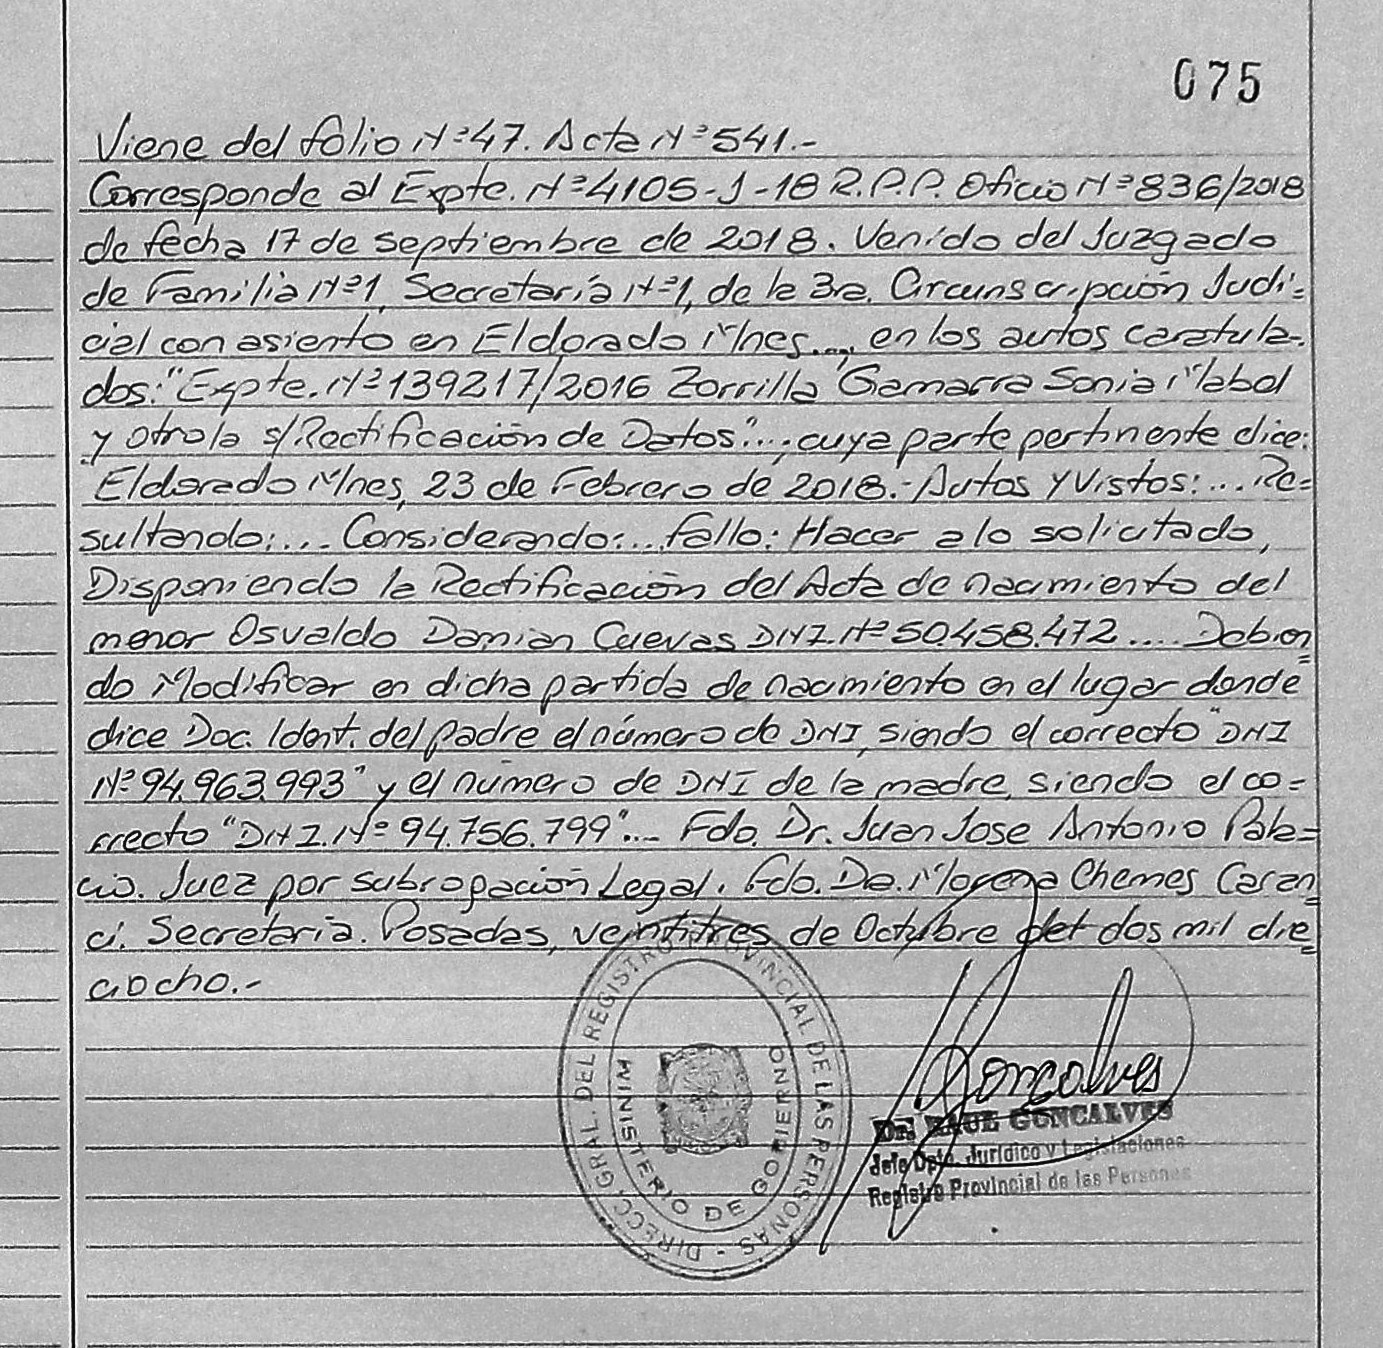 075
Viene del folio Nº47. Acta Nº541.-
Corresponde al Expte. Nº4105-J-18 R.P.P. Oficio Nº836/2018
de fecha 17 de septiembre de 2018. Venido del Juzgado
de Familia Nº1, Secretaría Nº1, de la 3ra. Circunscripción Judi=
cial con asiento en Eldorado Mnes...., en los autos caratula=
dos: "Expte. Nº139217/2016 Zorrilla Gamarra Sonia Mabel
y otro/a s/Rectificación de Datos"...; cuya parte pertinente dice:
Eldorado Mnes, 23 de Febrero de 2018.- Autos y Vistos:... Re=
sultando:... Considerando:... Fallo: Hacer a lo solicitado,
Disponiendo la Rectificación del Acta de nacimiento del
menor Osvaldo Damian Cuevas DNI. Nº50.458.472.... Debien=
do Modificar en dicha partida de nacimiento en el lugar donde
dice Doc. Ident. del padre el número de DNI, siendo el correcto "DNI
Nº94.963.993" y el número de DNI de la madre, siendo el co=
rrecto "DNI. Nº94.756.799".... Fdo. Dr. Juan Jose Antonio Pala=
cio. Juez por subrogación Legal. Fdo. Da. Morena Chemes Caran=
ci. Secretaria. Posadas, veintitres de Octubre del dos mil die=
ciocho.-
DIRECC. GRAL. DEL REGISTRO PROVINCIAL DE LAS PERSONAS -
MINISTERIO DE GOBIERNO
Goncalves
DR. RAUL GONCALVES
Jefe Dpto. Jurídico y Legislaciones
Registro Provincial de las Personas